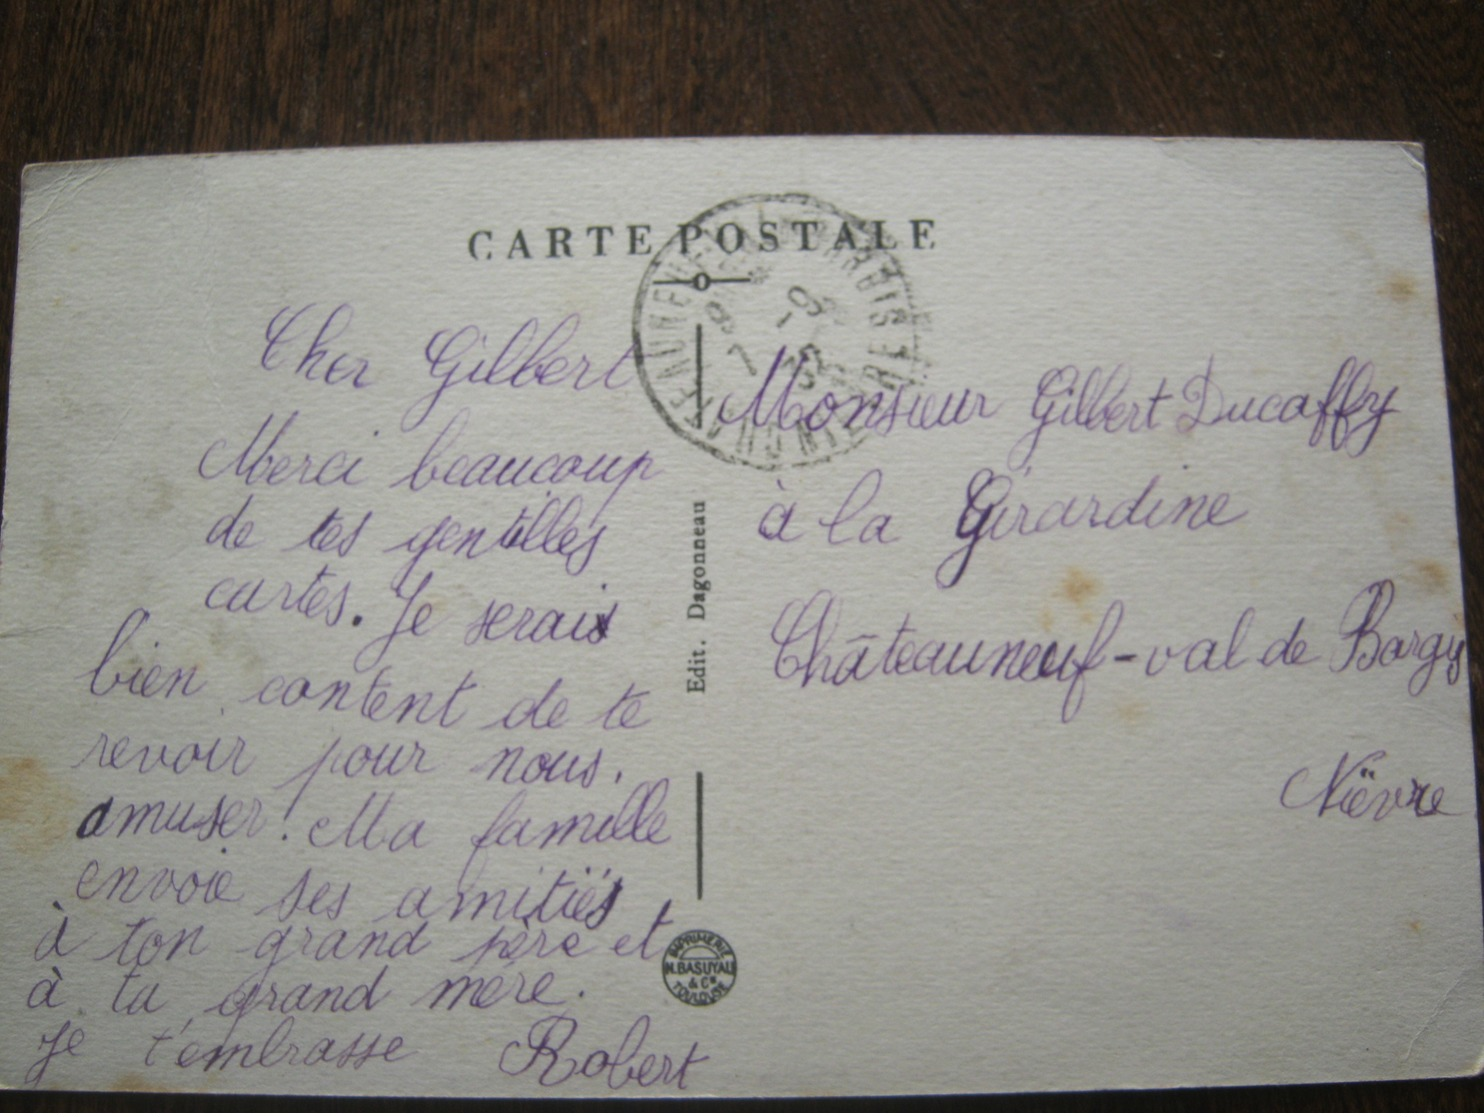 CARTE POSTALE
Cher Gilbert
Merci beaucoup
de tes gentilles
cartes. Je serais
bien content de te
revoir pour nous.
amuser. Ma famille
envoie ses amitiés
à ton grand père et
à ta grand mère.
Je t'embrasse Robert
Edit. Dagonneau
IMPRIMERIE
H. BASUYAU
& Cº
TOULOUSE
Monsieur Gilbert Ducaffy
à la Girardine
Châteauneuf-val de Bargis
Nièvre